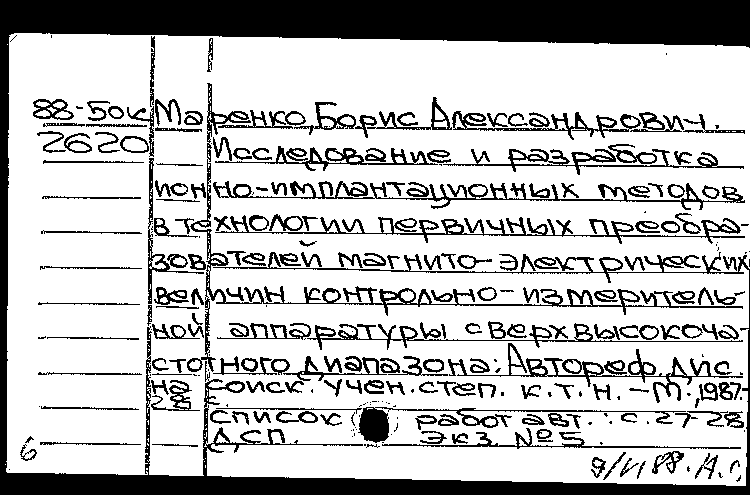 88-5ок Маренко, Борис Александрович.
2620 Исследование и разработка
ионно-имплантационных методов
в технологии первичных преобра-
зователей магнито-электрических
величин контрольно-измеритель-
ной аппаратуры сверхвысокоча-
стотного диапазона: Автореф. дис.
на соиск. учен. степ. к.т.н. - М., 1987.-
28 с.
список работ авт.: с. 27-28
Д.СП. экз. №5.
6
9/VI 88. Н.С.